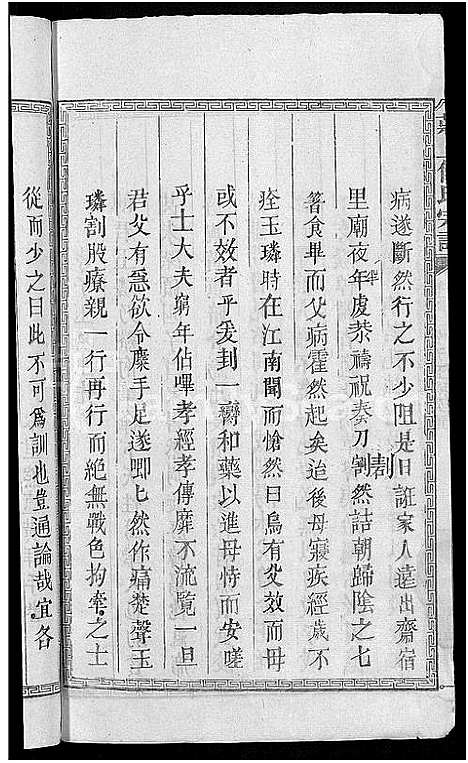 病遂斷然行之不少阻是日誑家人遠出齋宿
里廟夜年虔恭禱祝奏刀劃然詰朝歸陰之七
箸食畢而父病霍然起矣迨後母寢疾經歲不
痊玉璘時在江南聞而愴然曰烏有父效而母
或不效者乎爰封一臠和藥以進母恃而安嗟
乎士大夫窮年佔嗶孝經孝傳靡不流覽一旦
君父有急欲令糜手足遂唧匕然作痛楚聲玉
璘割股療親一行再行而絕無戰色拘牽之士
從而少之曰此不可為訓也豈通論哉宜各